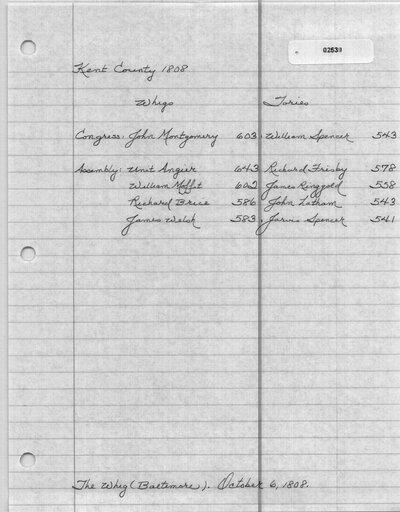 02539
Kent County 1808
Whigs Tories
Congress: John Montgomery 603, William Spencer 543
Assembly: Unit Angier 643 Richard Frisby 578
William Moffit 602 James Ringgold 558
Richard Brice 586 John Latham 543
James Welsh 583, Jarvis Spencer 541
The Whig (Baltimore). October 6, 1808.